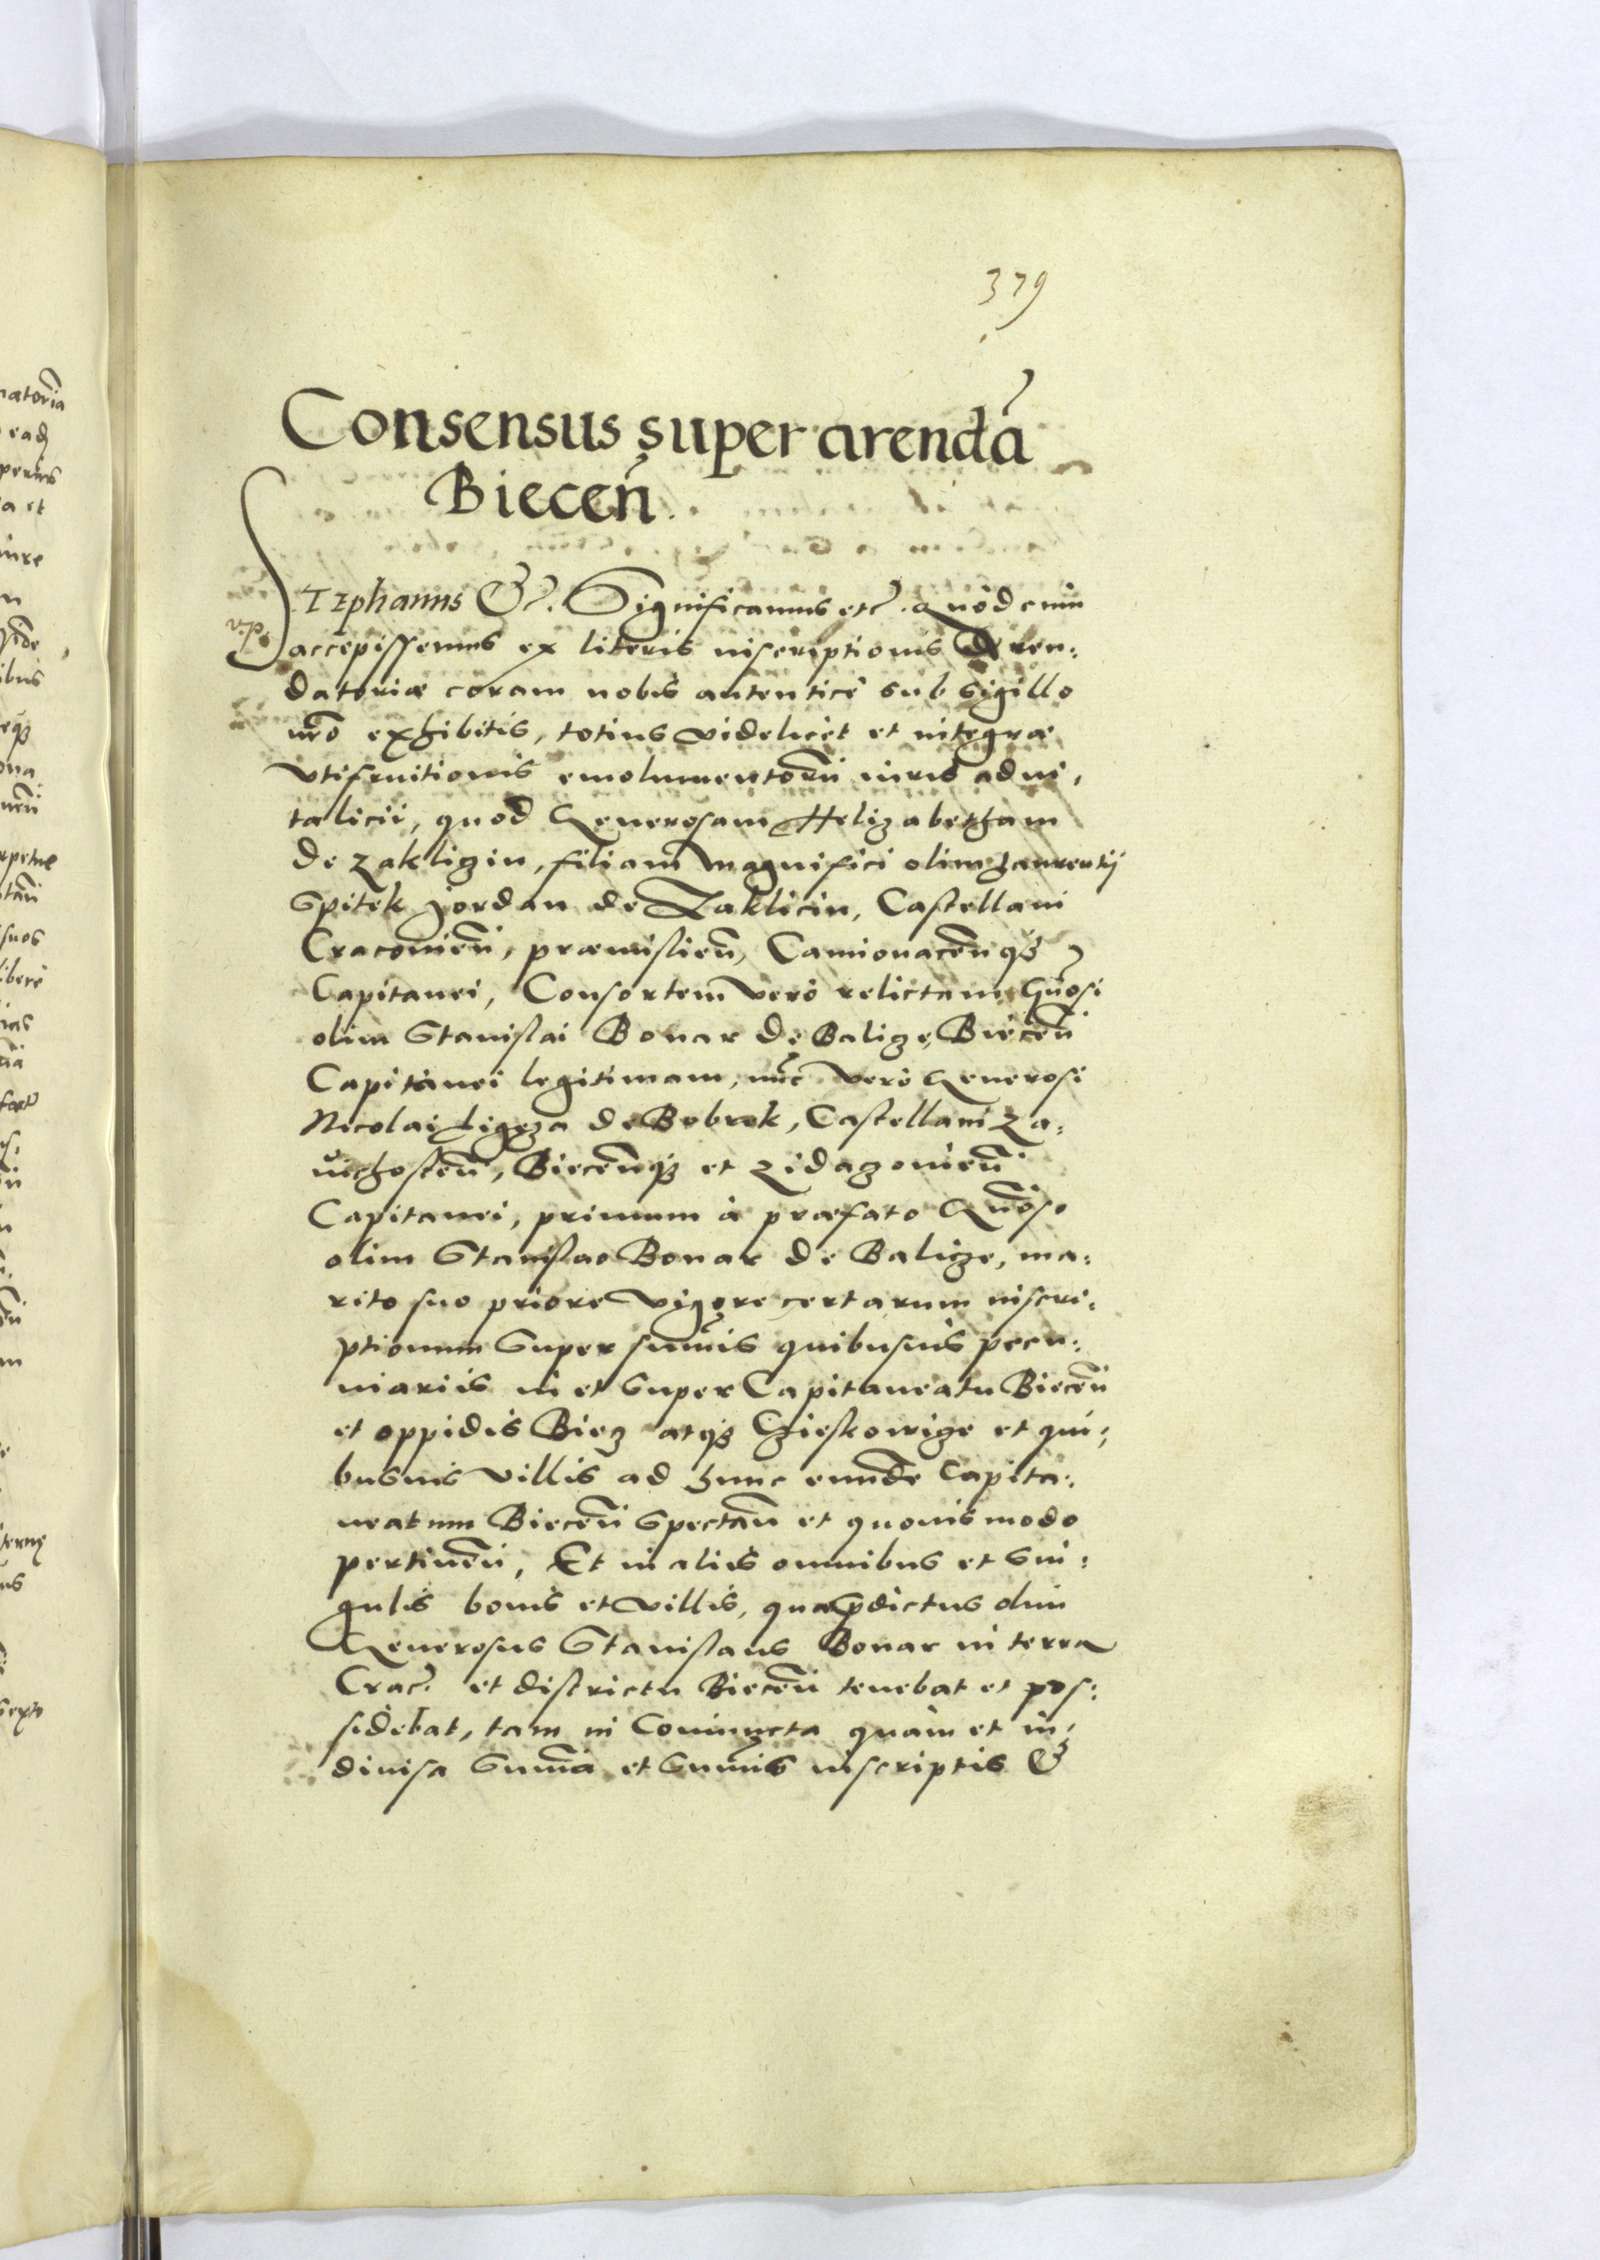 379
Consensus super arendã
Biecen̄.
STEphanus &c. Significamus etc. Quod cum
accepissemus ex literis inscriptionis Aren:
datoriæ coram nobis autenticè sub sigillo
nrõ exhibitis, totius videlicet et integræ
vtifruitionis emolumentorũ iuris advi,
talicii, quod Generosam Helizabetham
de Zakliczin, filiam Magnifici olim Laurentij
Spitek Jordan de Zaklicin, Castellani
Cracovien̄, præmislien̄, Camionacen̄qꝫ
Capitanei, Consortem vero relictam Gñosi
olim Stanislai Bonar de Balicze, Biecen̄
Capitanei legitimam, nũc vero Generosi
Nicolai Ligęza de Bobrek, Castellani Za:
wichosten̄, Biecen̄qꝫ et Zidazovien̄
Capitanei, primum à præfato Gñoso
olim Stanislao Bonar de Balicze, ma:
rito suo priore vigore certarum inscri:
ptionum super sum̃is quibusvis pecu:
niariis in et super Capitaneatu Biecen̄
et oppidis Biecz atqꝫ Czieskowicze et qui:
busvis villis ad hunc eundẽ Capita:
neatum Biecen̄ spectan̄ et quovis modo
pertinen̄, Et in aliis omnibus et sin:
gulis bonis et villis, quæ p̃dictus olim
Generosus Stanislaus Bonar in terra
Crac. et districtu Biecen̄ tenebat et pos:
sidebat, tam in Coniuncta quàm et in,
divisa sum̃a et sum̃is inscriptis &